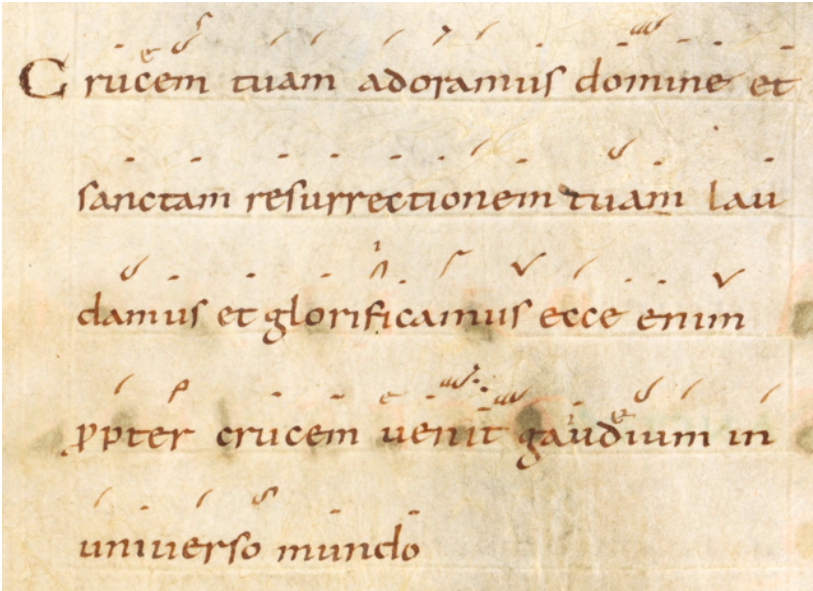 Crucem tuam adoramus domine et
sanctam resurrectionem tuam lau
damus et glorificamus ecce enim
ꝓpter crucem uenit gaudium in
uniuerso mundo